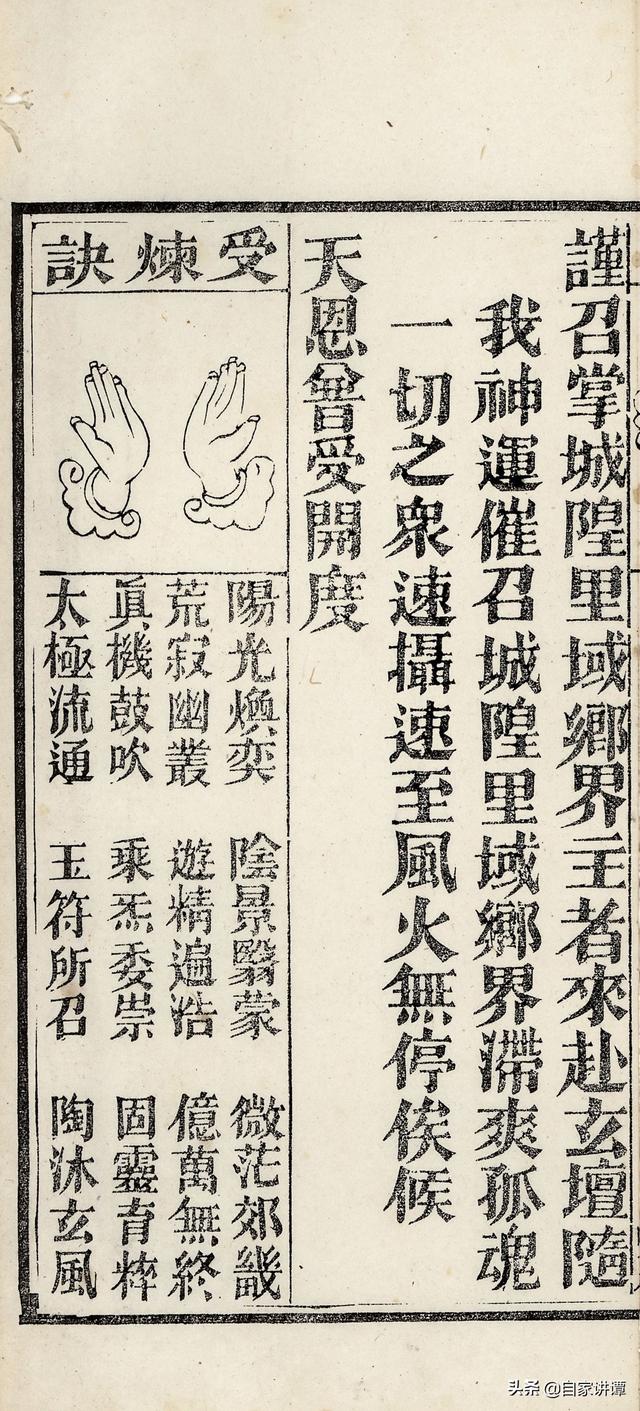 謹召掌城隍里域鄉界主者來赴玄壇隨
我神運催召城隍里域鄉界滯爽孤魂
一切之衆速攝速至風火無停俟候
天恩普受開度
受煉訣
陽光煥奕 陰景翳蒙 微茫郊畿
荒寂幽叢 遊精遍浩 億萬無終
眞機鼓吹 乘炁委崇 固靈育粹
太極流通 玉符所召 陶沐玄風
头条 @自家讲谭